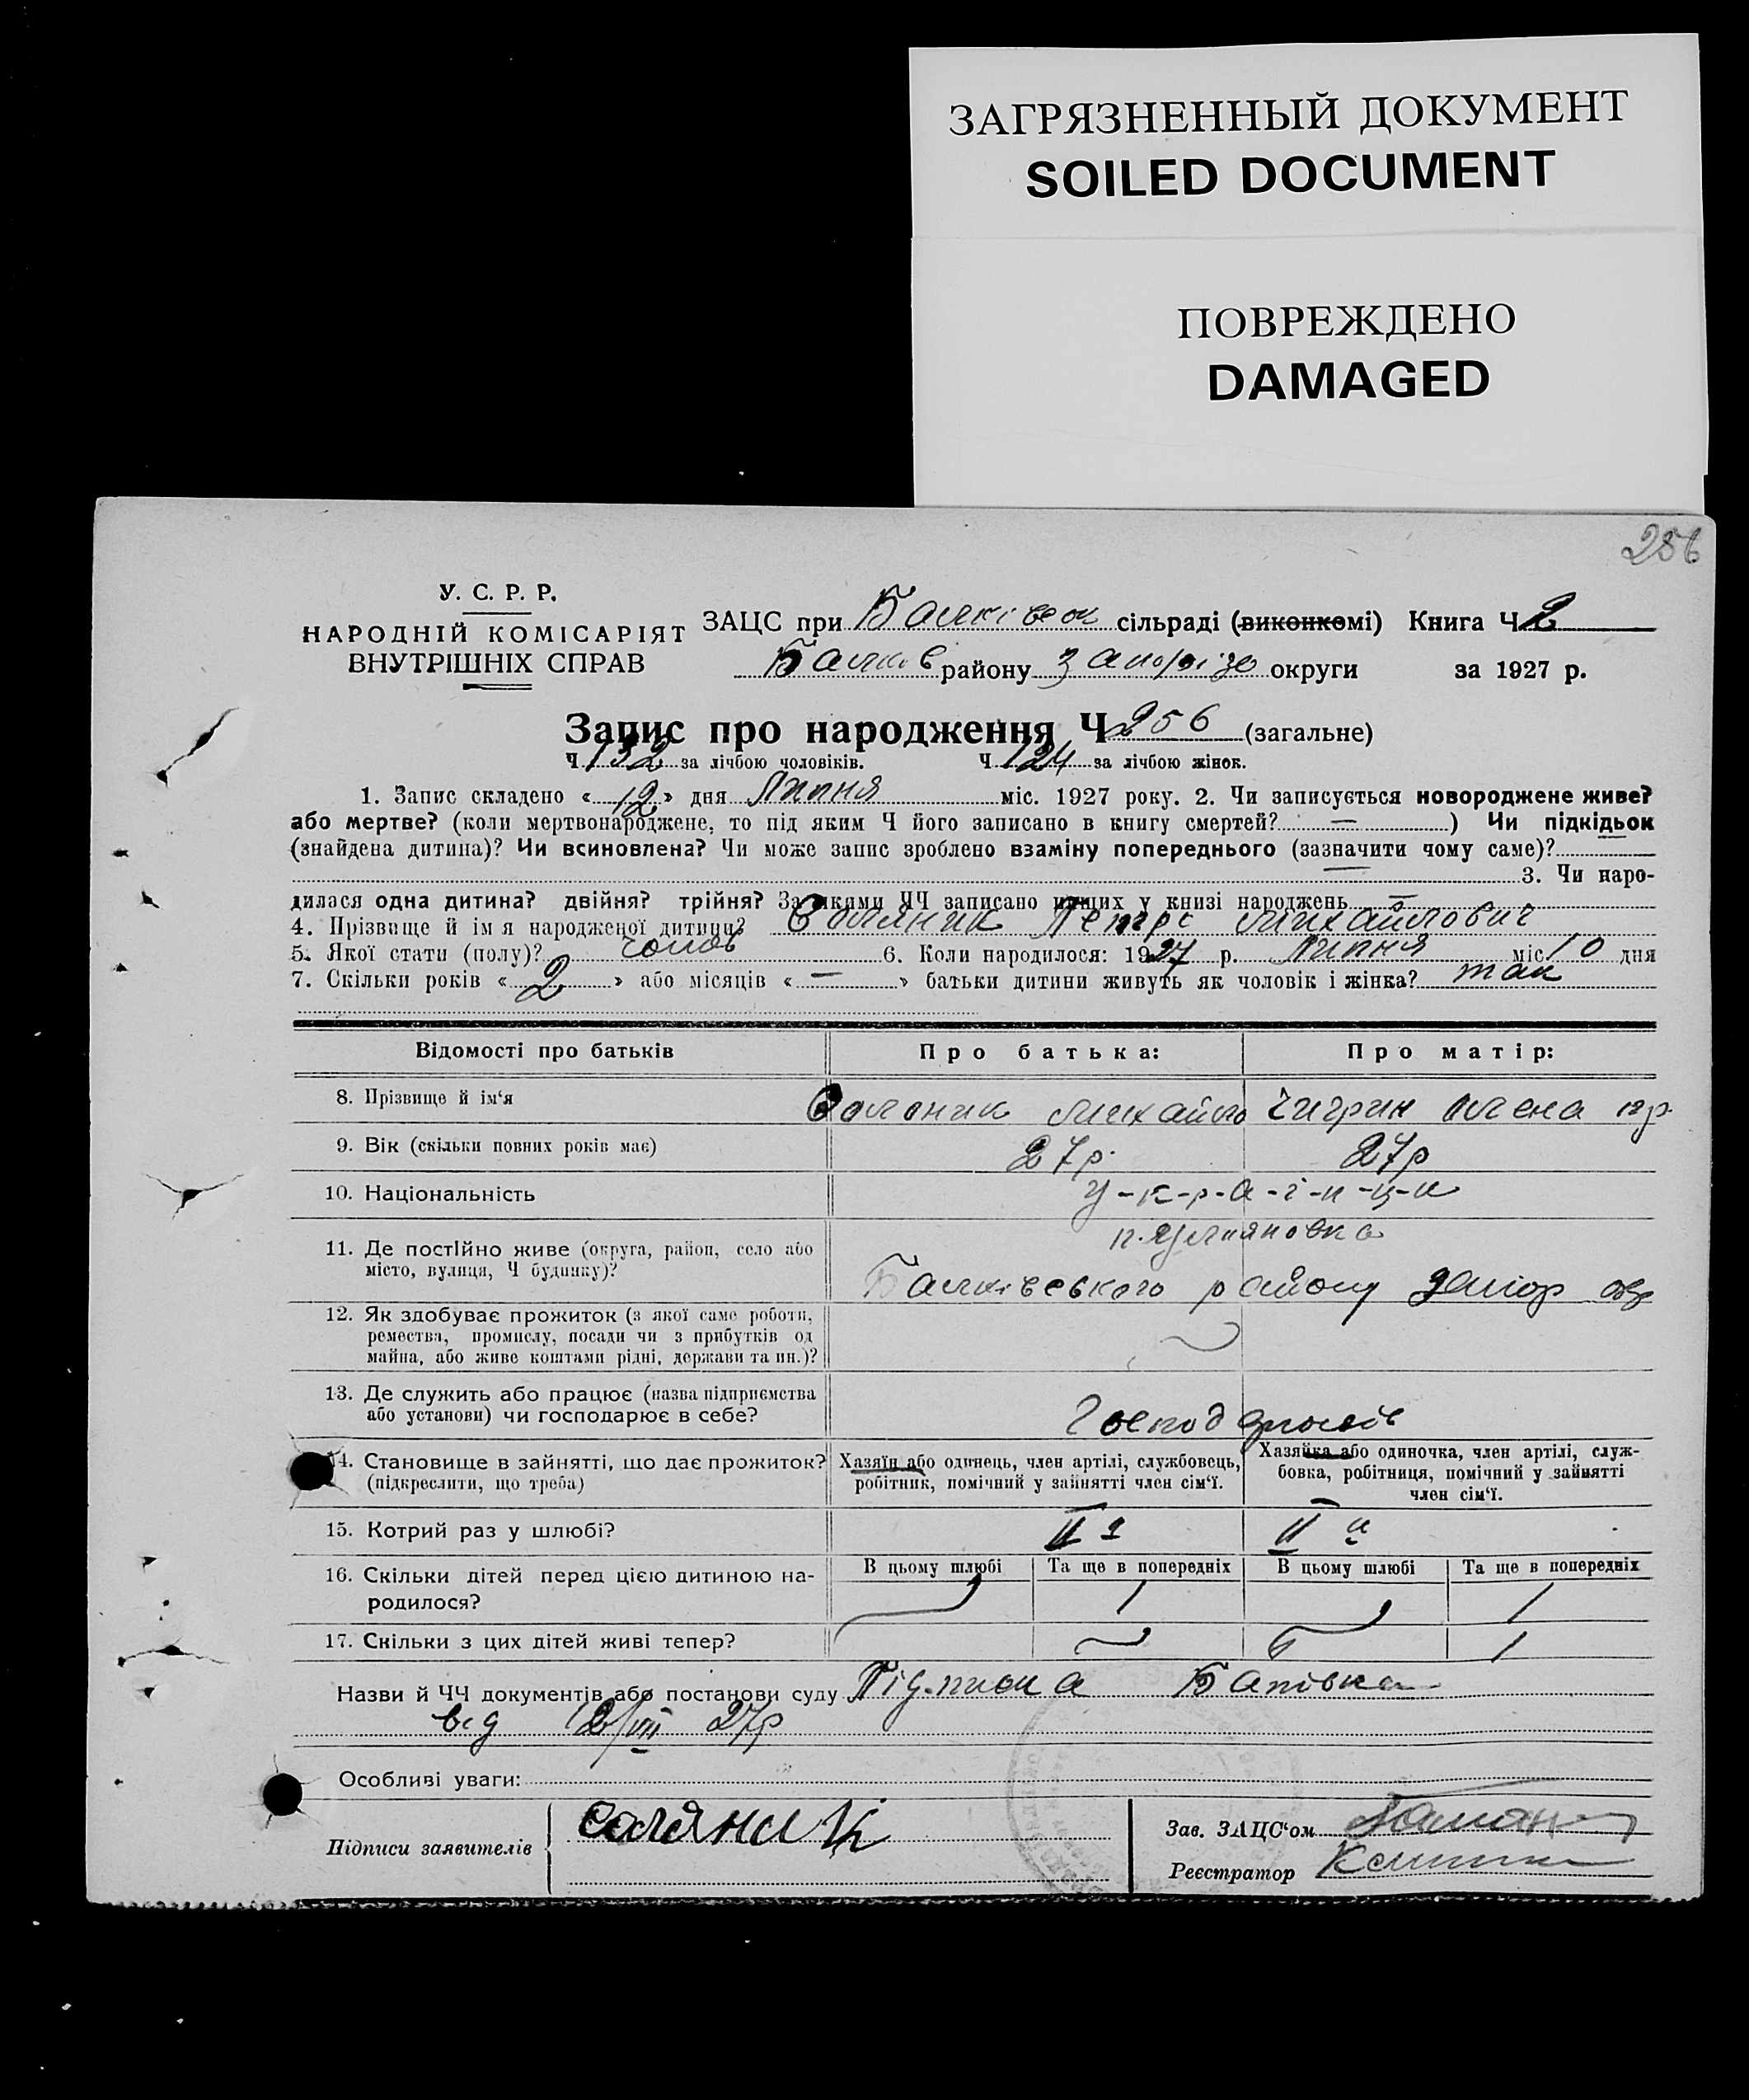 ЗАГРЯЗНЕННЫЙ ДОКУМЕНТ
SOILED DOCUMENT
ПОВРЕЖДЕНО
DAMAGED
256
У. С. Р. Р.
НАРОДНІЙ КОМІСАРІЯТ
ВНУТРІШНІХ СПРАВ
ЗАЦС при сільраді (виконкомі) Книга Ч 2
Балків району Запоріз округи за 1927 р.
Запис про народження Ч 256 (загальне)
Ч 132 за лічбою чоловіків. Ч 124 за лічбою жінок.
1. Запис складено « 12 » дня Липня міс. 1927 року. 2. Чи записується новороджене живе?
або мертве? (коли мертвонароджене, то під яким Ч його записано в книгу смертей? — ) Чи підкідьок
(знайдена дитина)? Чи всиновлена? Чи може запис зроблено взаміну попереднього (зазначити чому саме)?
— 3. Чи наро-
дилася одна дитина? двійня? трійня? За якими ЧЧ записано инших у книзі народжень —
4. Прізвище й ім я народженої дитини? Соляник Петро Михайлович
5. Якої стати (полу)? чолов 6. Коли народилося: 1927 р. Липня міс. 10 дня
7. Скільки років « 2 » або місяців « — » батьки дитини живуть як чоловік і жінка? так
Відомості про батьків Про батька: Про матір:
8. Прізвище й ім‘я Соляник Михайло Чигрин Олена гр.
9. Вік (скільки повних років має) 27р. 27р
10. Національність У-к-р-а-ї-н-ц-і
11. Де постійно живе (округа, район, село або
місто, вулиця, Ч будинку)?
Балківського району Запор окр
12. Як здобуває прожиток (з якої саме роботи,
ремества, промислу, посади чи з прибутків од
майна, або живе коштами рідні, держави та ин.)?
13. Де служить або працює (назва підприємства
або установи) чи господарює в себе?
14. Становище в зайнятті, що дає прожиток?
(підкреслити, що треба)
Хазяїн або одинець, член артілі, службовець,
робітник, помічний у зайнятті член сім‘ї.
Хазяйка або одиночка, член артілі, служ-
бовка, робітниця, помічний у зайнятті
член сім‘ї.
15. Котрий раз у шлюбі? II й II й
16. Скільки дітей перед цією дитиною на-
родилося?
В цьому шлюбі Та ще в попередніх В цьому шлюбі Та ще в попередніх
1 1
17. Скільки з цих дітей живі тепер? 1
Назви й ЧЧ документів або постанови суду Підписка Батівка
від 12/VII 27р
Особливі уваги:
Підписи заявителів Саляник
Зав. ЗАЦС‘ом
Реєстратор